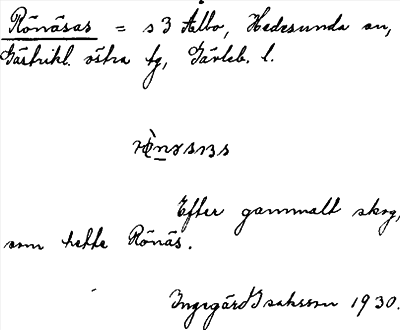 Rönäsas = s 3 Älbo, Hedesunda sn,
Gästrikl. östra tg, Gävleb. l.
Efter gammalt skog,
som hette Rönäs.
Ingegärd Isaksson 1930.